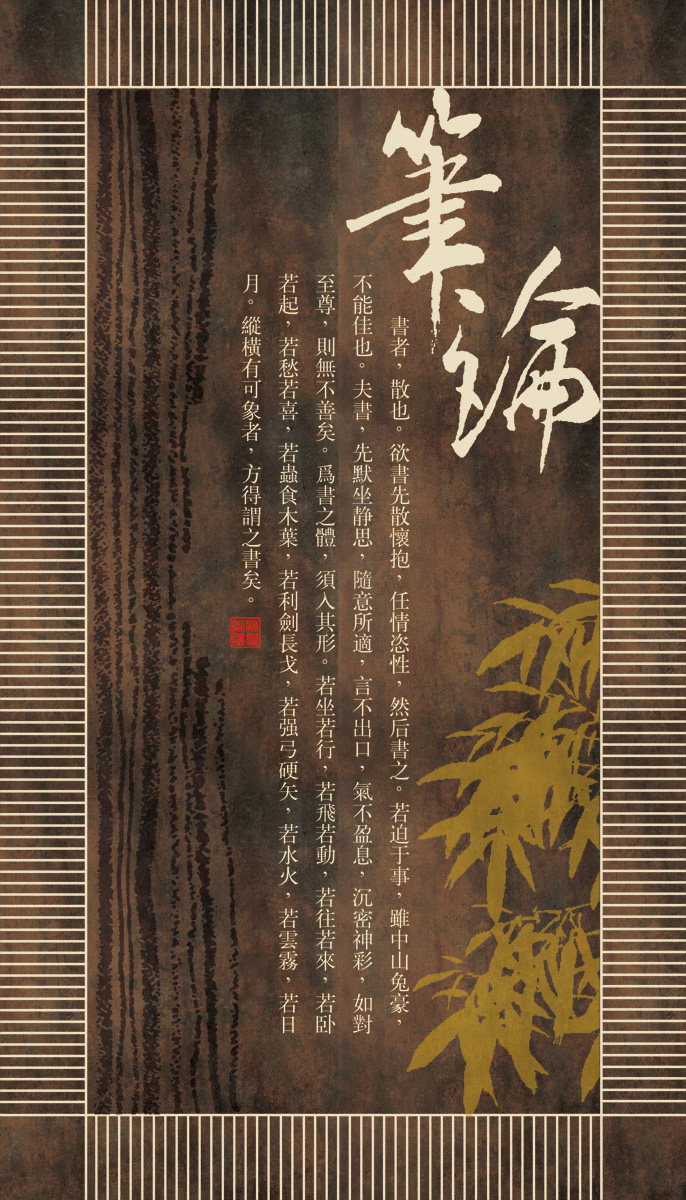 筆論
書者，散也。欲書先散懷抱，任情恣性，然后書之。若迫于事，雖中山兔豪，
不能佳也。夫書，先默坐静思，隨意所適，言不出口，氣不盈息，沉密神彩，如對
至尊，則無不善矣。爲書之體，須入其形。若坐若行，若飛若動，若往若來，若卧
若起，若愁若喜，若蟲食木葉，若利劍長戈，若强弓硬矢，若水火，若雲霧，若日
月。縱横有可象者，方得謂之書矣。